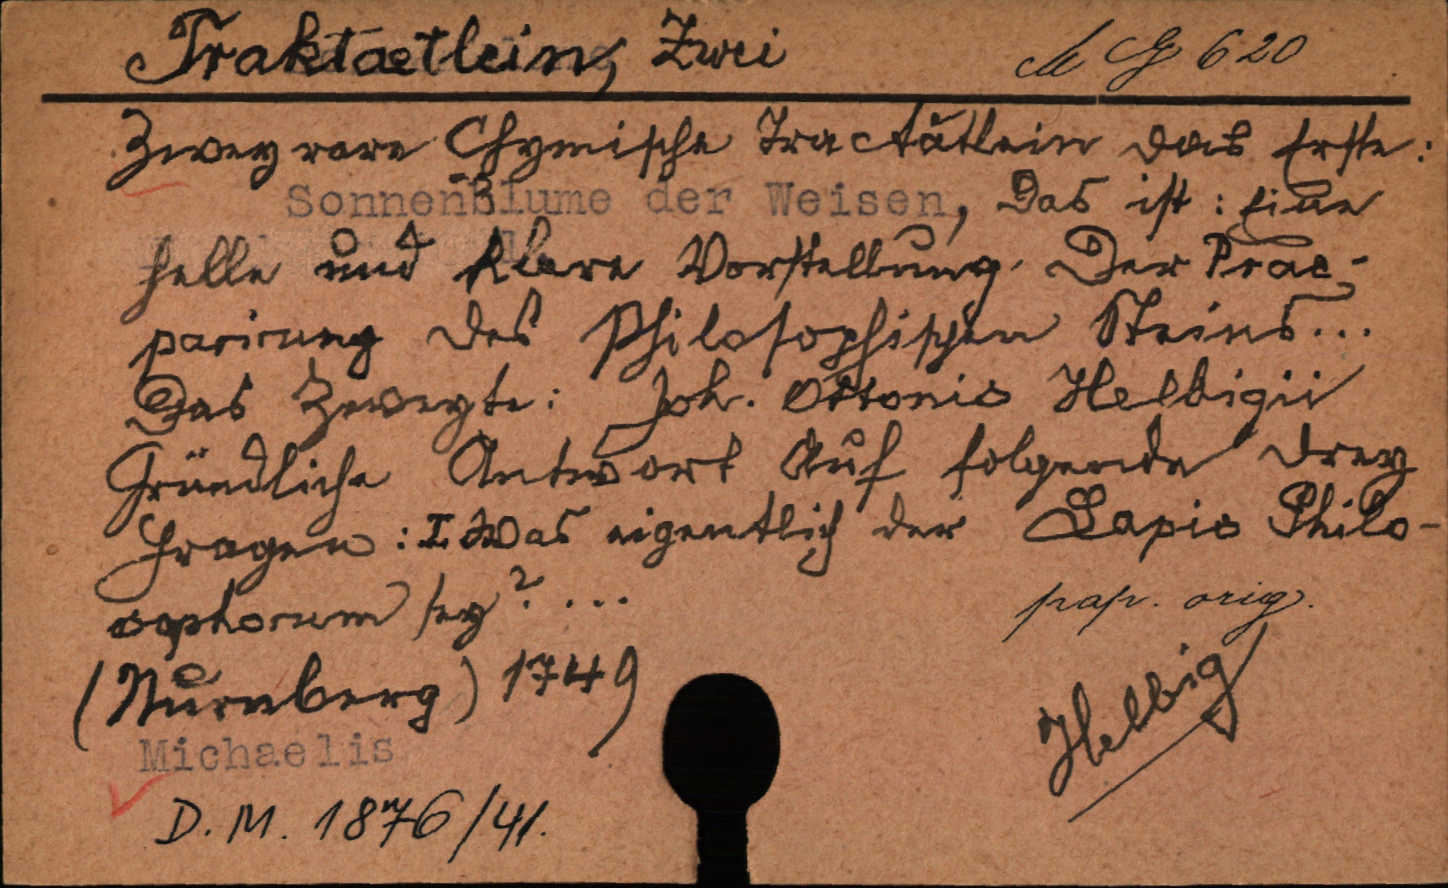 Traktaetlein, Zwei
M G 620
Zwey rare Chymische Tractätlein das Erste:
SonnenBlume der Weisen, Das ist: Eine
helle und klare Vorstellung Der Prae-
parirung des Philosophischen Steins...
Das Zweyte: Joh. Ottonis Helbigii
Gründliche Antwort Auf folgende drey
Fragen: I Was eigentlich der Lapis Philo-
sophorum sey? ...
pap. orig.
(Nürnberg) 1749
Helbig
Michaelis
D. M. 1876/41.